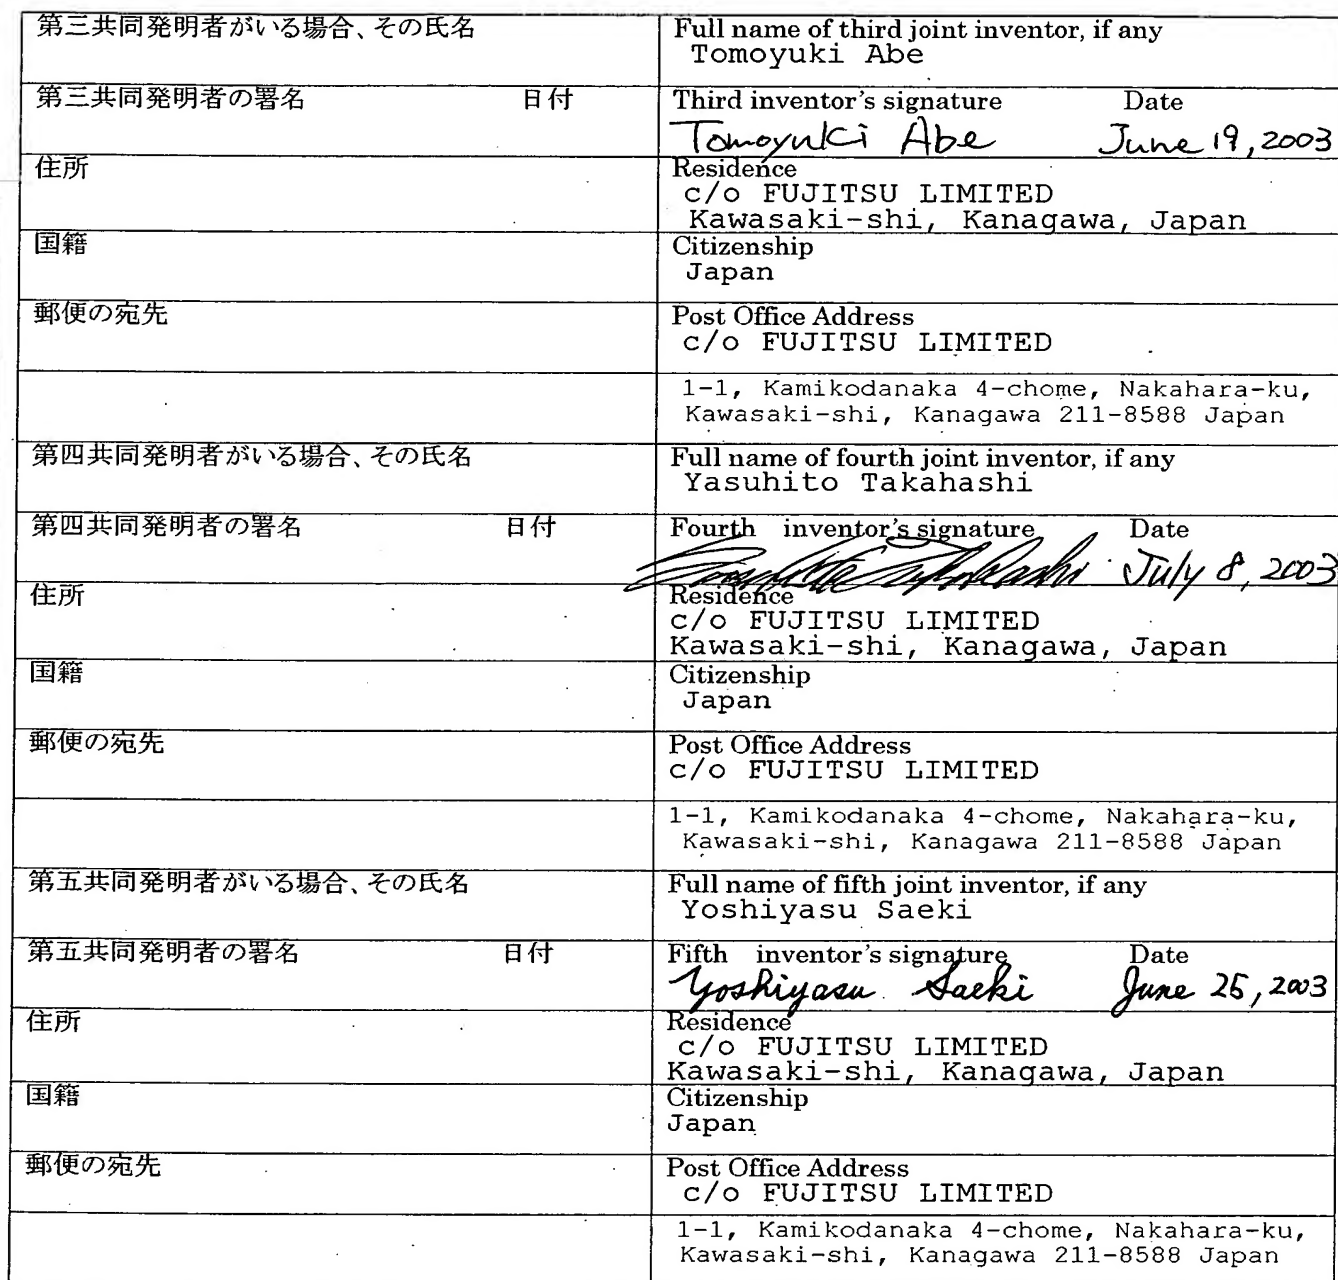 第三共同発明者がいる場合、その氏名
Full name of third joint inventor, if any
Tomoyuki Abe
第三共同発明者の署名 日付
Third inventor's signature Date
Tomoyuki Abe June 19, 2003
住所
Residence
c/o FUJITSU LIMITED
Kawasaki-shi, Kanagawa, Japan
国籍
Citizenship
Japan
郵便の宛先
Post Office Address
c/o FUJITSU LIMITED
1-1, Kamikodanaka 4-chome, Nakahara-ku,
Kawasaki-shi, Kanagawa 211-8588 Japan
第四共同発明者がいる場合、その氏名
Full name of fourth joint inventor, if any
Yasuhito Takahashi
第四共同発明者の署名 日付
Fourth inventor's signature Date
Yasuhito Takahashi July 8, 2003
住所
Residence
c/o FUJITSU LIMITED
Kawasaki-shi, Kanagawa, Japan
国籍
Citizenship
Japan
郵便の宛先
Post Office Address
c/o FUJITSU LIMITED
1-1, Kamikodanaka 4-chome, Nakahara-ku,
Kawasaki-shi, Kanagawa 211-8588 Japan
第五共同発明者がいる場合、その氏名
Full name of fifth joint inventor, if any
Yoshiyasu Saeki
第五共同発明者の署名 日付
Fifth inventor's signature Date
Yoshiyasu Saeki June 25, 2003
住所
Residence
c/o FUJITSU LIMITED
Kawasaki-shi, Kanagawa, Japan
国籍
Citizenship
Japan
郵便の宛先
Post Office Address
c/o FUJITSU LIMITED
1-1, Kamikodanaka 4-chome, Nakahara-ku,
Kawasaki-shi, Kanagawa 211-8588 Japan